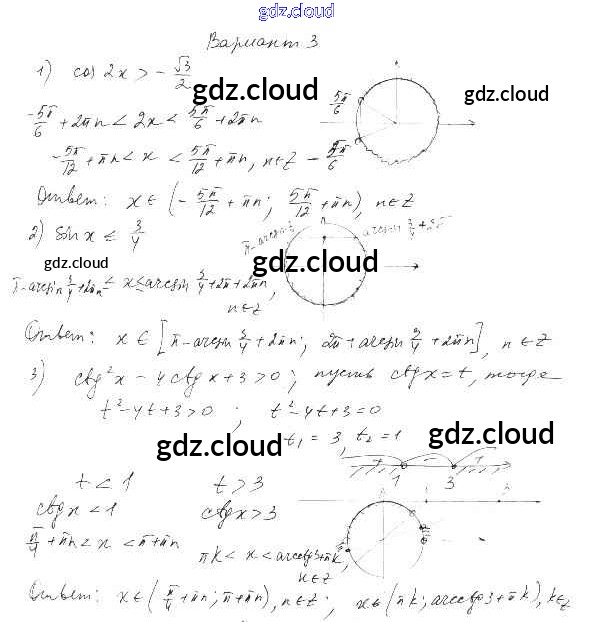 gdz.cloud
Вариант 3
1) cos 2x > - √3/2
gdz.cloud
gdz.cloud
-5π/6 + 2πn < 2x < 5π/6 + 2πn
5π/6
-5π/12 + πn < x < 5π/12 + πn, n∈Z
- 5π/6
Ответ: x ∈ (- 5π/12 + πn; 5π/12 + πn), n∈Z
2) sin x ≤ 3/4
π - arcsin 3/4
arcsin 3/4 + 2π
gdz.cloud
gdz.cloud
π - arcsin 3/4 + 2πn ≤ x ≤ arcsin 3/4 + 2π + 2πn,
n∈Z
Ответ: x ∈ [π - arcsin 3/4 + 2πn; 2π + arcsin 3/4 + 2πn], n ∈ Z
3) ctg²x - 4ctgx + 3 > 0; пусть ctgx = t, тогда
t² - 4t + 3 > 0; t² - 4t + 3 = 0
gdz.cloud
gdz.cloud
t₁ = 3, t₂ = 1
+ - +
1 3
t < 1 t > 3
ctgx < 1 ctgx > 3
π/4 + πn < x < π + πn
πk < x < arcctg3 + πk,
k∈Z
Ответ: x∈(π/4 + πn; π + πn), n∈Z; x∈(πk; arcctg3 + πk), k∈Z